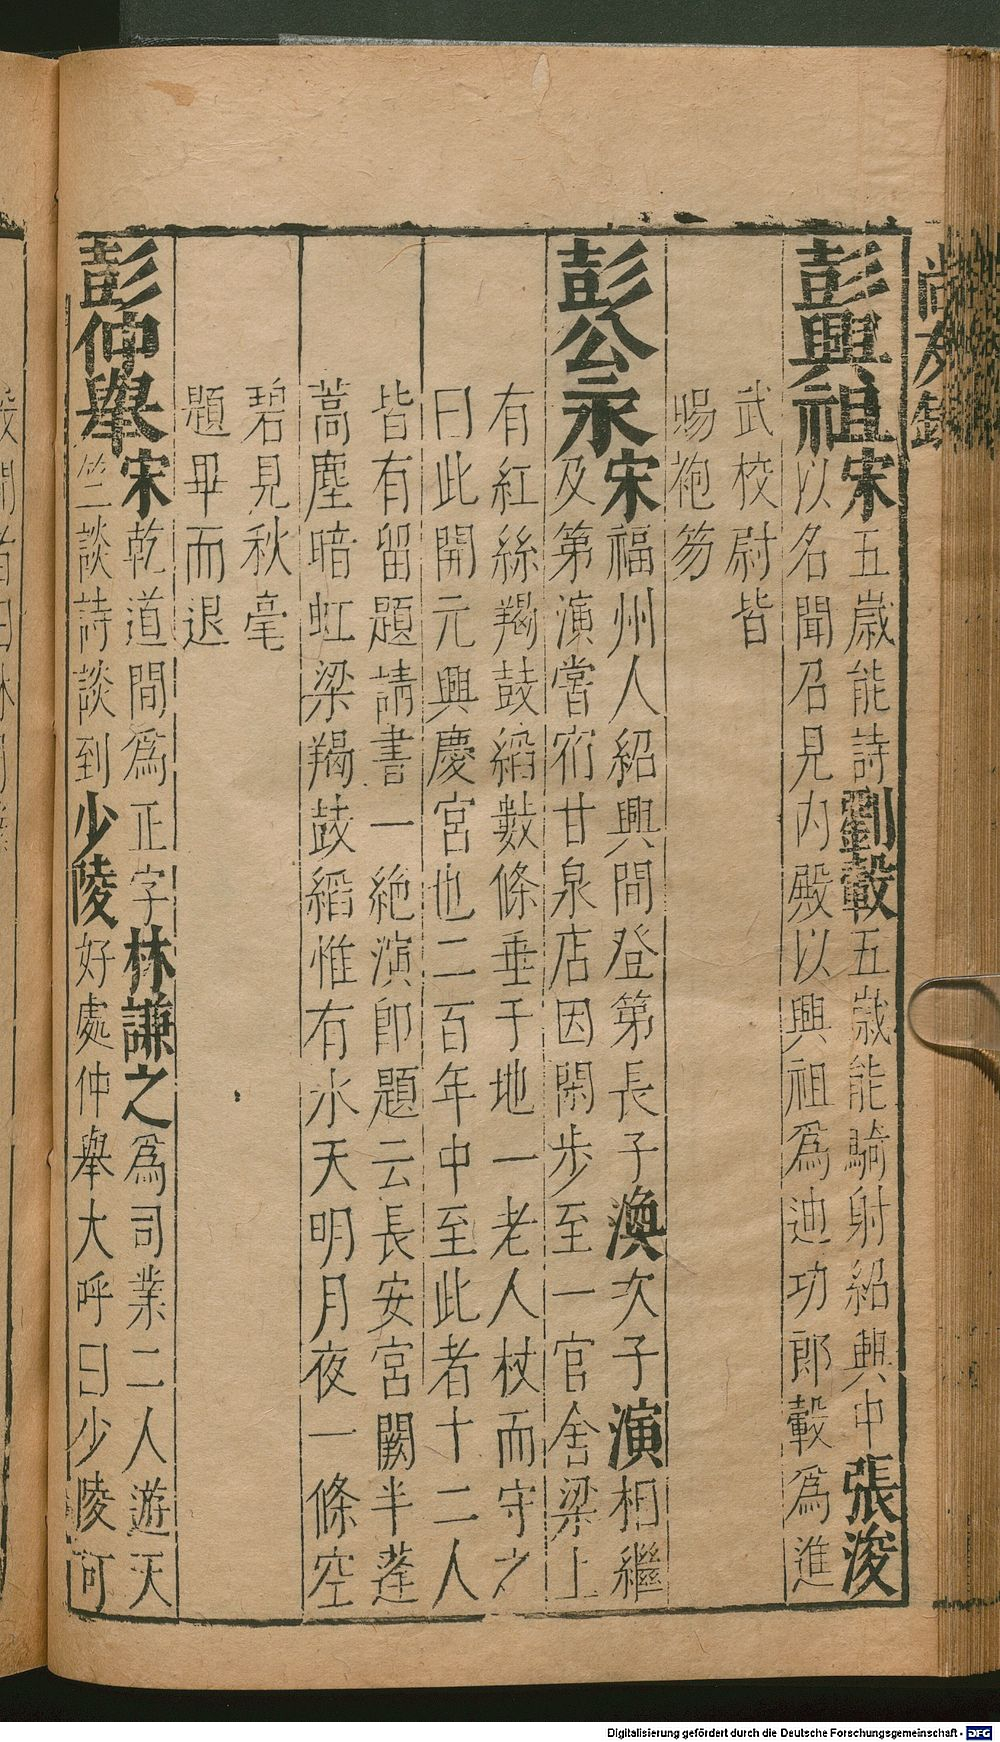 尚友錄
彭興祖宋五歲能詩劉轂五歲能騎射紹興中張浚
以名聞召見內殿以興祖爲迪功郎轂爲進
武校尉皆
賜袍笏
彭公永宋福州人紹興間登第長子渙次子演相繼
及第演嘗宿甘泉店因閑步至一官舍梁上
有紅絲羯鼓縚數條垂于地一老人杖而守之
曰此開元興慶宮也二百年中至此者十二人
皆有留題請書一絶演卽題云長安宮闕半蓬
蒿塵暗虹梁羯鼓縚惟有水天明月夜一條空
碧見秋毫
題畢而退
彭仲舉宋乾道間爲正字林謙之爲司業二人遊天
竺談詩談到少陵好處仲舉大呼曰少陵可
Digitalisierung gefördert durch die Deutsche Forschungsgemeinschaft - DFG